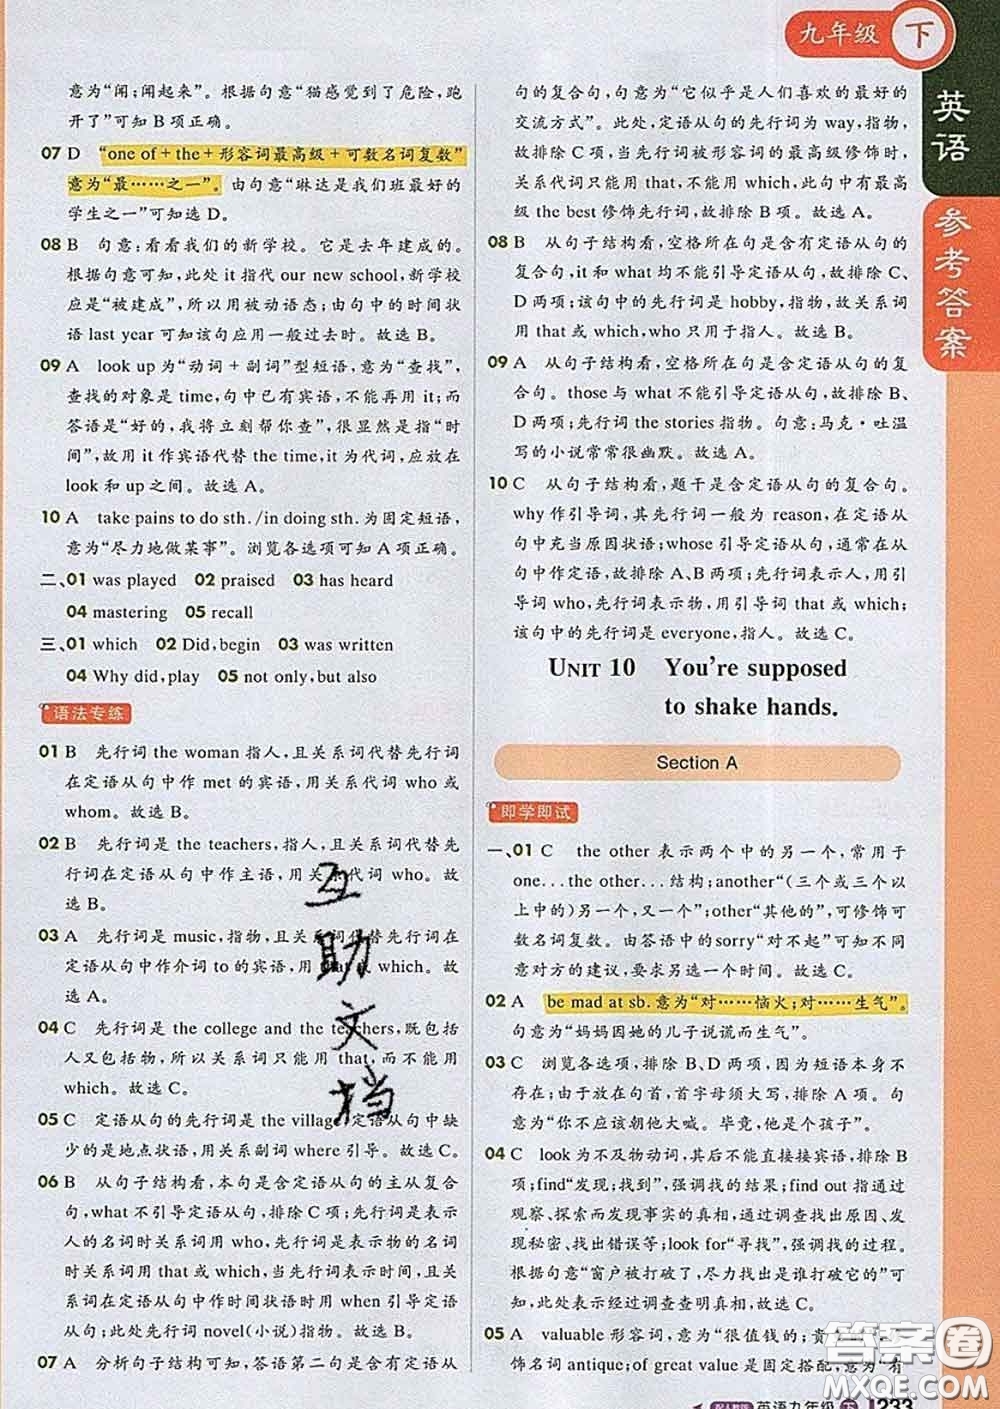 九年级 下
英语
参考答案
意为“闻;闻起来”。根据句意“猫感觉到了危险,跑
开了”可知B项正确。
07 D “one of+the+形容词最高级+可数名词复数”
意为“最……之一”。由句意“琳达是我们班最好的
学生之一”可知选D。
08 B 句意:看看我们的新学校。它是去年建成的。
根据句意可知,此处it指代our new school,新学校
应是“被建成”,所以用被动语态;由句中的时间状
语last year可知该句应用一般过去时。故选B。
09 A look up为“动词+副词”型短语,意为“查找”,
查找的对象是time,句中已有宾语,不能再用it;而
答语是“好的,我将立刻帮你查”,很显然是指“时
间”,故用it作宾语代替the time,it为代词,应放在
look和up之间。故选A。
10 A take pains to do sth./in doing sth.为固定短语,
意为“尽力地做某事”。浏览各选项可知A项正确。
二、01 was played 02 praised 03 has heard
04 mastering 05 recall
三、01 which 02 Did, begin 03 was written
04 Why did, play 05 not only, but also
语法专练
01 B 先行词the woman指人,且关系词代替先行词
在定语从句中作met的宾语,用关系代词who或
whom。故选B。
02 B 先行词the teachers,指人,且关系词代替先行
词在定语从句中作主语,用关系代词who。故
选B。
03 A 先行词是music,指物,且关系词代替先行词在
定语从句中作介词to的宾语,用that或which。故
选A。
04 C 先行词是the college and the teachers,既包括
人又包括物,所以关系词只能用that,而不能用
which。故选C。
05 C 定语从句的先行词是the village,定语从句中缺
少的是地点状语,用关系副词where引导。故选C。
06 B 从句子结构看,本句是含定语从句的主从复合
句,what不引导定语从句,排除C项;先行词是表示
人的名词时关系词用who;先行词是表示物的名词
时关系词用that或which;先行词表示时间,且关
系词在定语从句中作时间状语时用when引导定语
从句;此处先行词novel(小说)指物。故选B。
07 A 分析句子结构可知,答语第二句是含有定语从
句的复合句,句意为“它似乎是人们喜欢的最好的
交流方式”。此处,定语从句的先行词为way,指物,
故排除C项,当先行词被形容词的最高级修饰时,
关系代词只能用that,不能用which,此句中有最高
级the best修饰先行词,故排除B项。故选A。
08 B 从句子结构看,空格所在句是含有定语从句的
复合句,it和what均不能引导定语从句,故排除C、
D两项;该句中的先行词是hobby,指物,故关系词
用that或which,who只用于指人。故选B。
09 A 从句子结构看,空格所在句是含定语从句的复
合句。those与what不能引导定语从句,故排除B、
D两项;先行词the stories指物。句意:马克·吐温
写的小说常常很幽默。故选A。
10 C 从句子结构看,题干是含定语从句的复合句。
why作引导词,其先行词一般为reason,在定语从
句中充当原因状语;whose引导定语从句,通常在从
句中作定语,故排除A、B两项;先行词表示人,用引
导词who,先行词表示物,用引导词that或which;
该句中的先行词是everyone,指人。故选C。
UNIT 10 You're supposed
to shake hands.
Section A
即学即试
一、01 C the other表示两个中的另一个,常用于
one...the other...结构;another“(三个或三个以
上中的)另一个,又一个”;other“其他的”,可修饰可
数名词复数。由答语中的sorry“对不起”可知不同
意对方的建议,要求另选一个时间。故选C。
02 A be mad at sb.意为“对……恼火;对……生气”。
句意为“妈妈因她的儿子说谎而生气”。
03 C 浏览各选项,排除B、D两项,因为短语本身不
存在。由于放在句首,首字母要大写,排除A项。句
意为“你不应该朝他大喊。毕竟,他是个孩子”。
04 C look为不及物动词,其后不能直接接宾语,排除B
项;find“发现;找到”,强调找的结果;find out指通过
观察、探索而发现事实的真相,通过调查找出原因、发
现秘密、找出错误等;look for“寻找”,强调找的过程。
根据句意“窗户被打破了,尽力找出是谁打破它的”可
知,此处表示经过调查查明真相。故选C。
05 A valuable形容词,意为“很值钱的;贵
饰名词antique;of great value是固定搭配,意为“有
互助文档
答案圈
MXQE.COM
配人教版 英语九年级 下 1233